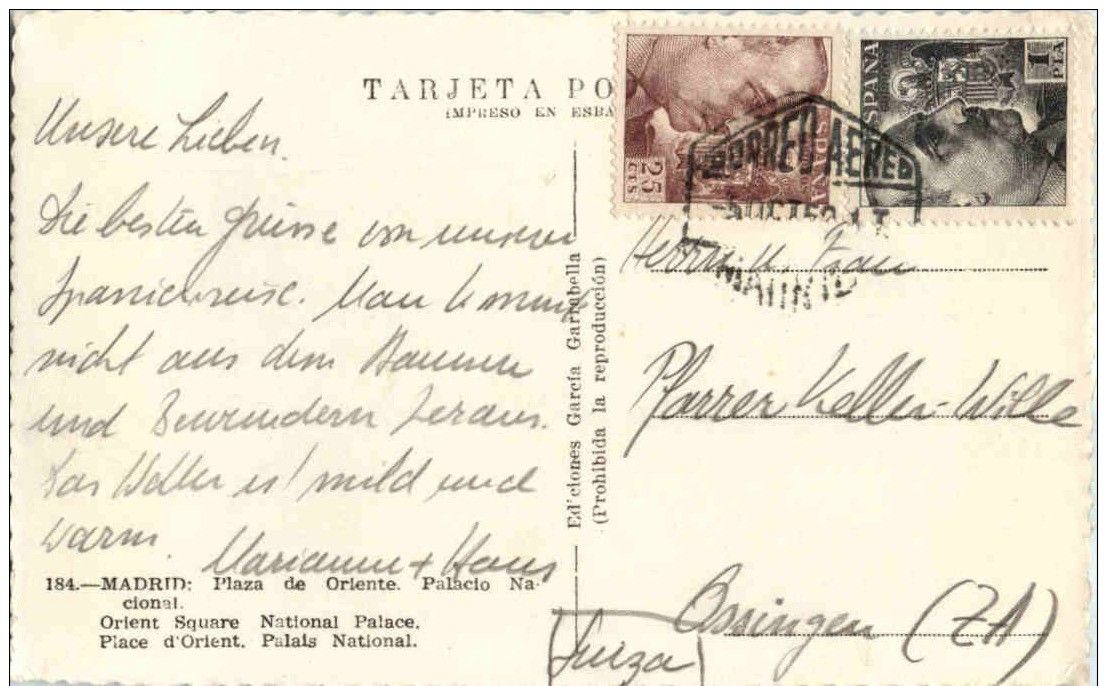 TARJETA PO
IMPRESO EN ESPA
Unsere Lieben.
Die besten Grüsse von unserer
Spanienreise. Man kommt
nicht aus dem Staunen
und Bewundern heraus.
Das Wetter ist mild und
warm.
Marianne + Hans
184.—MADRID: Plaza de Oriente. Palacio Na-
cional.
Orient Square National Palace.
Place d'Orient. Palais National.
Ediciones García Garrabella
(Prohibida la reproducción)
25
CTS
ESPAÑA
ESPAÑA
1
PTA
CORREO AEREO
MADRID
Herrn u. Frau
Pfarrer Keller-Wille
Ossingen (ZH)
(Suiza)